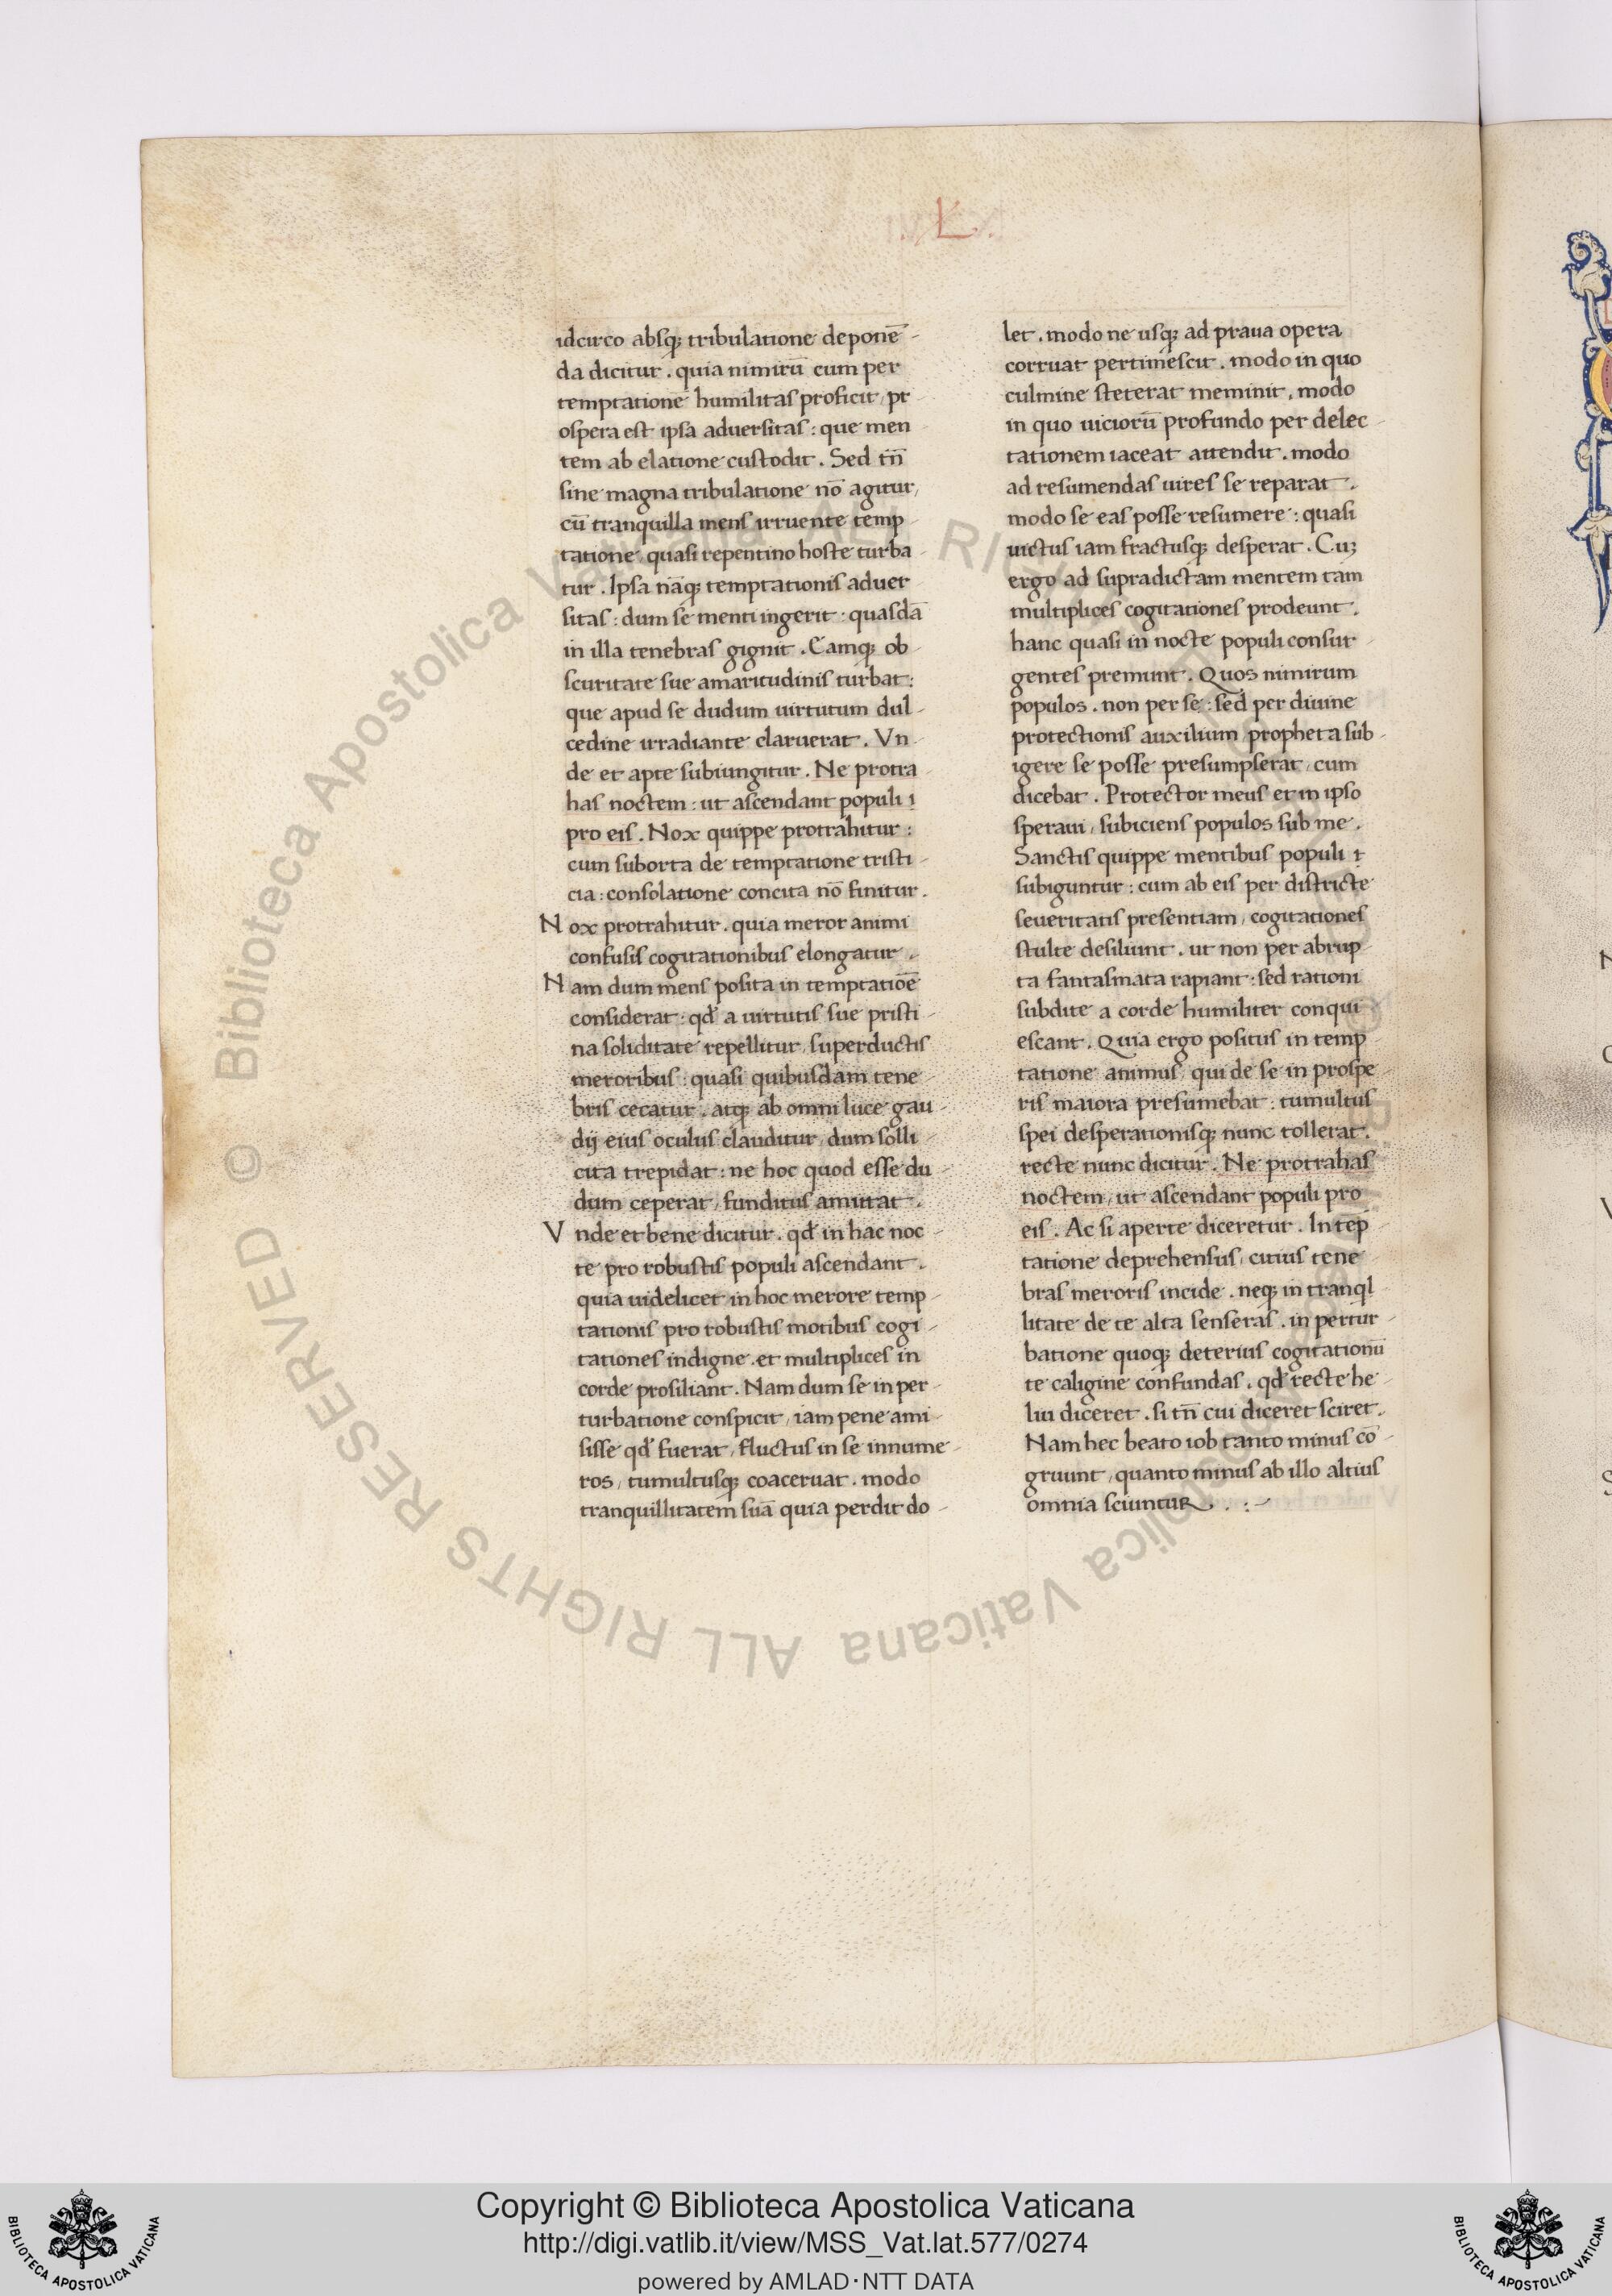 .L.
idcirco absq; tribulatione deponē-
da dicitur . quia nimirū cum per
temptatione humilitas proficit, pr
ospera est ipsa aduersitas : que men
tem ab elatione custodit . Sed tn̄
sine magna tribulatione nō agitur,
cū tranquilla mens irruente temp-
tatione, quasi repentino hoste turba-
tur . Ipsa nāq; temptationis aduer
sitas : dum se menti ingerit : quasdā
in illa tenebras gignit . Eamq; ob-
scuritate sue amaritudinis turbat :
que apud se dudum uirtutum dul-
cedine irradiante claruerat . Vn-
de et apte subiungitur . Ne protra-
has noctem : ut ascendant populi
pro eis . Nox quippe protrahitur :
cum suborta de temptatione tristi-
cia : consolatione concita nō finitur .
Nox protrahitur . quia meror animi
confusis cogitationibus elongatur .
Nam dum mens posita in temptatiōe
considerat : qđ a uirtutis sue pristi-
na soliditate repellitur, superductis
meroribus : quasi quibusdam tene-
bris cecatur . atq; ab omni luce gau-
dij eius oculus clauditur, dum solli-
cita trepidat : ne hoc quod esse du-
dum ceperat, funditus amittat .
Vnde et bene dicitur . qđ in hac noc-
te pro robustis populi ascendant .
quia uidelicet in hoc merore temp-
tationis pro robustis motibus cogi-
tationes indigne . et multiplices in
corde prosiliant . Nam dum se in per-
turbatione conspicit, iam pene ami-
sisse qđ fuerat, fluctus in se innume-
ros, tumultusq; coaceruat . modo
tranquillitatem suā quia perdit do-
let . modo ne usq; ad praua opera
corruat pertimescit . modo in quo
culmine steterat meminit, modo
in quo uiciorū profundo per delec-
tationem iaceat attendit . modo
ad resumendas uires se reparat .
modo se eas posse resumere : quasi
uictus iam fractusq; desperat . Cuȝ
ergo ad supradictam mentem tam
multiplices cogitationes prodeunt .
hanc quasi in nocte populi consur-
gentes premunt . Quos nimirum
populos . non per se : sed per diuine
protectionis auxilium, propheta sub-
igere se posse presumpserat, cum
dicebat . Protector meus et in ipso
speraui, subiciens populos sub me .
Sanctis quippe mentibus populi
subiguntur : cum ab eis per districte
seueritatis presentiam, cogitationes
stulte desiliunt . ut non per abrup-
ta fantasmata rapiant : sed rationi
subdite a corde humiliter conqui-
escant . Quia ergo positus in temp-
tatione animus, qui de se in prospe-
ris maiora presumebat : tumultus
spei desperationisq; nunc tollerat .
recte nunc dicitur . Ne protrahas
noctem, ut ascendant populi pro
eis . Ac si aperte diceretur . In tēp-
tatione deprehensus, citius tene-
bras meroris incide . neq; in tranql-
litate de te alta senseras . in pertur-
batione quoq; deterius cogitationū
te caligine confundas . qđ recte he-
liu diceret . si tn̄ cui diceret sciret .
Nam hec beato iob tanto minus cō-
gruunt, quanto minus ab illo altius
omnia sciuntur . : -
Copyright © Biblioteca Apostolica Vaticana
http://digi.vatlib.it/view/MSS_Vat.lat.577/0274
powered by AMLAD·NTT DATA
BIBLIOTECA APOSTOLICA VATICANA
BIBLIOTECA APOSTOLICA VATICANA
© Biblioteca Apostolica Vaticana ALL RIGHTS RESERVED